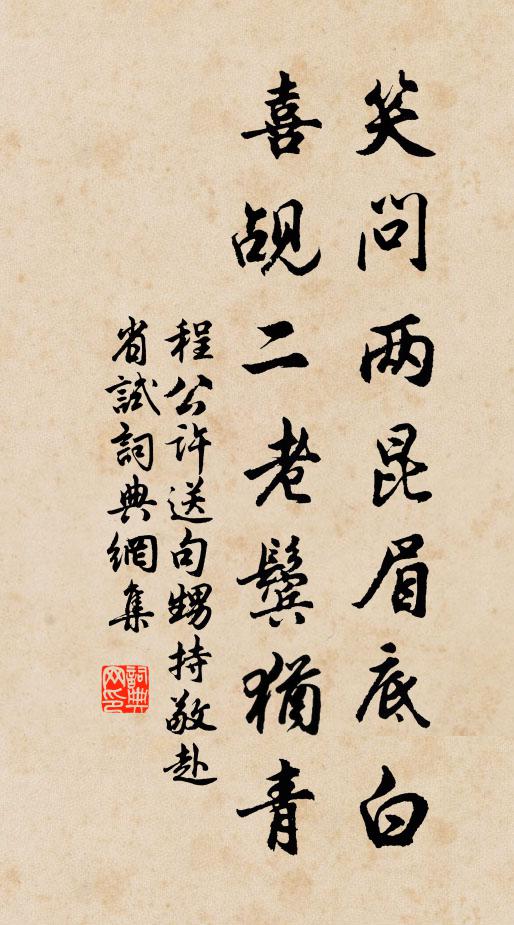 笑问两昆眉底白
喜觇二老鬓犹青
程公许送句甥持敬赴
省試詞典網集
詞典
网印